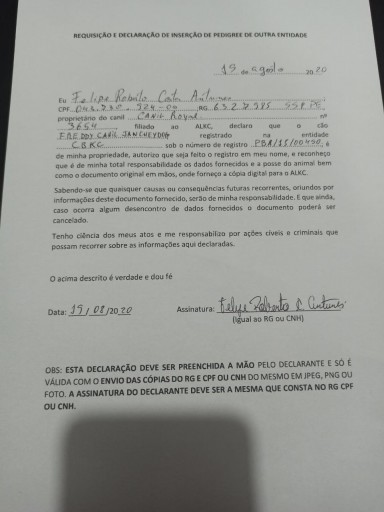 REQUISIÇÃO E DECLARAÇÃO DE INSERÇÃO DE PEDIGREE DE OUTRA ENTIDADE
19 de agosto 2020
Eu Felipe Roberto Costa Antunes
CPF. 043.730. 924-09 RG. 6327985 SSP PE
proprietário do canil CANIL Royal nº
3654 filiado ao ALKC, declaro que o cão
FREDDY CANIL registrado na entidade
CBKC sob o número de registro PBA/18/00490, é
de minha propriedade, autorizo que seja feito o registro em meu nome, e reconheço
que é de minha total responsabilidade os dados fornecidos e a posse do animal bem
como o documento original em mãos, onde forneço a cópia digital para o ALKC.
Sabendo-se que quaisquer causas ou consequências futuras recorrentes, oriundos por
informações deste documento fornecido, serão de minha responsabilidade. E que ainda,
caso ocorra algum desencontro de dados fornecidos o documento poderá ser
cancelado.
Tenho ciência dos meus atos e me responsabilizo por ações cíveis e criminais que
possam recorrer sobre as informações aqui declaradas.
O acima descrito é verdade e dou fé
Data: 19/08/2020 Assinatura: Felipe Roberto C Antunes
(Igual ao RG ou CNH)
OBS: ESTA DECLARAÇÃO DEVE SER PREENCHIDA A MÃO PELO DECLARANTE E SÓ É
VÁLIDA COM O ENVIO DAS CÓPIAS DO RG E CPF OU CNH DO MESMO EM JPEG, PNG OU
FOTO. A ASSINATURA DO DECLARANTE DEVE SER A MESMA QUE CONSTA NO RG CPF
OU CNH.